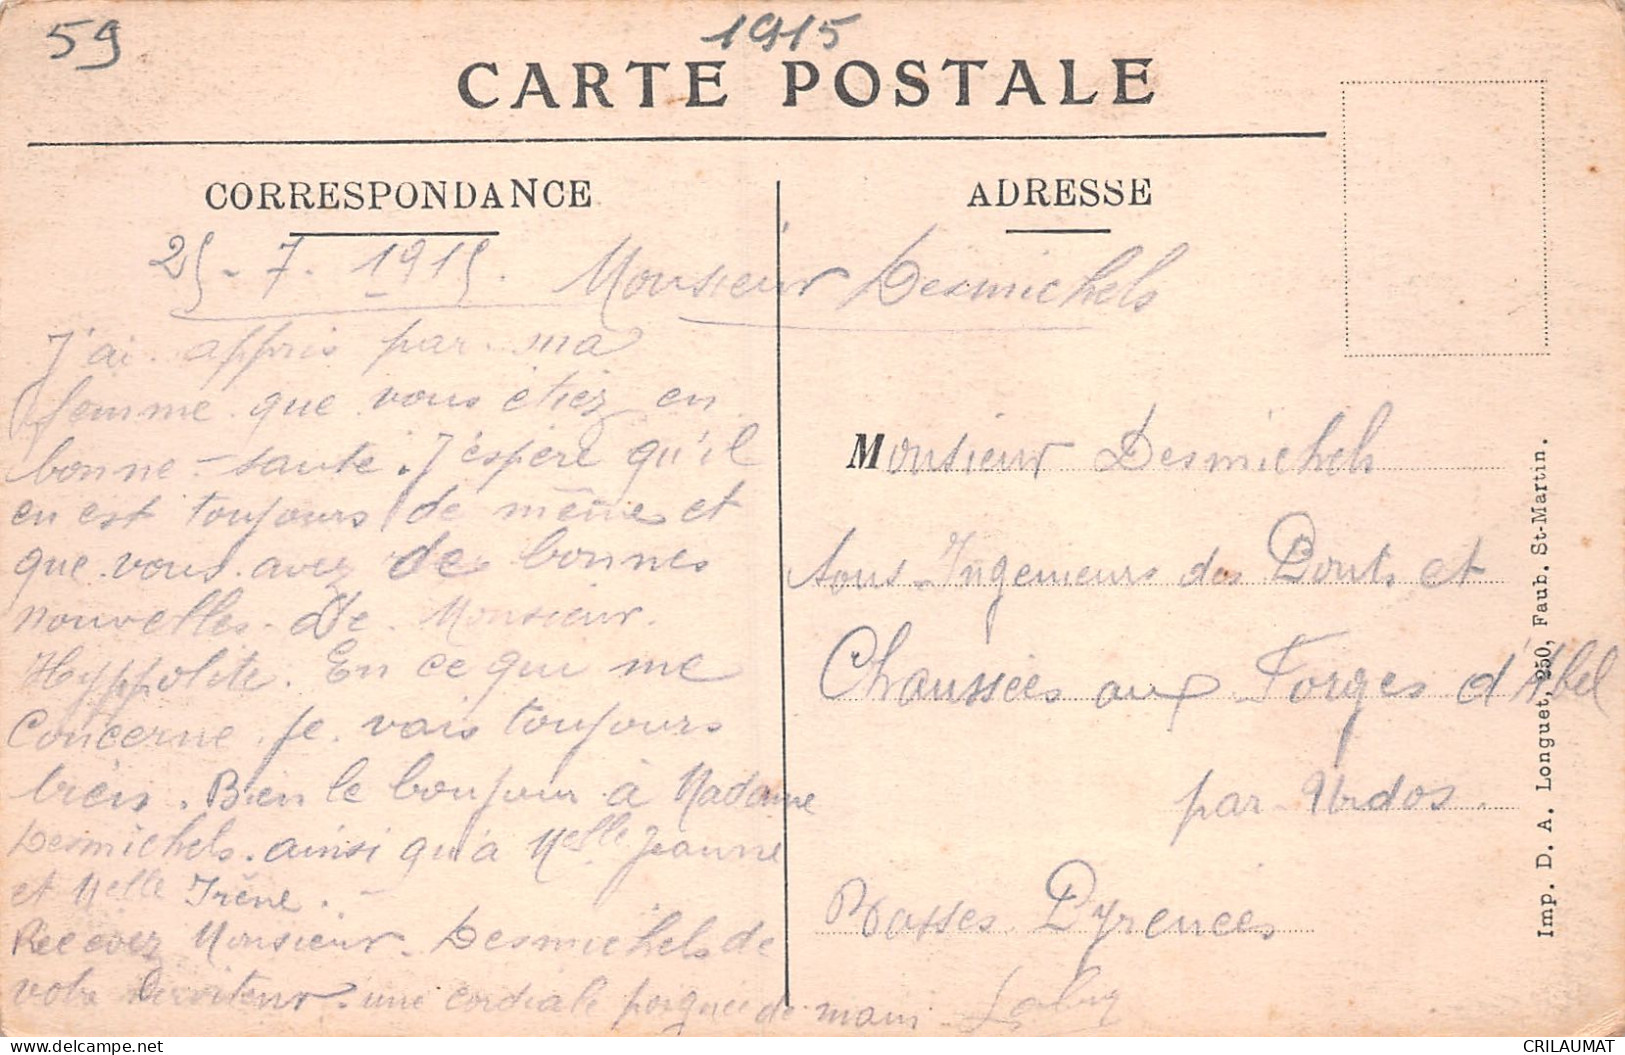 59
1915
CARTE POSTALE
CORRESPONDANCE
25-7-1915. Monsieur Desmichels
J'ai appris par ma
femme que vous étiez en
bonne-santé. J'espère qu'il
en est toujours de même et
que vous avez de bonnes
nouvelles. de Monsieur
Hyppolite. En ce qui me
concerne je vais toujours
bien. Bien le bonjour à Madame
Desmichels. ainsi qu'à Melle Jeanne
et Melle Irène.
Recevez Monsieur Desmichels de
votre serviteur. une cordiale poignée de main
ADRESSE
Monsieur Desmichels
Sous-Ingenieurs des Ponts et
Chaussées aux Forges d'Abel
par Urdos.
Basses Pyrenées
Imp. D. A. Longuet, 250, Faub. St-Martin.
CRILAUMAT